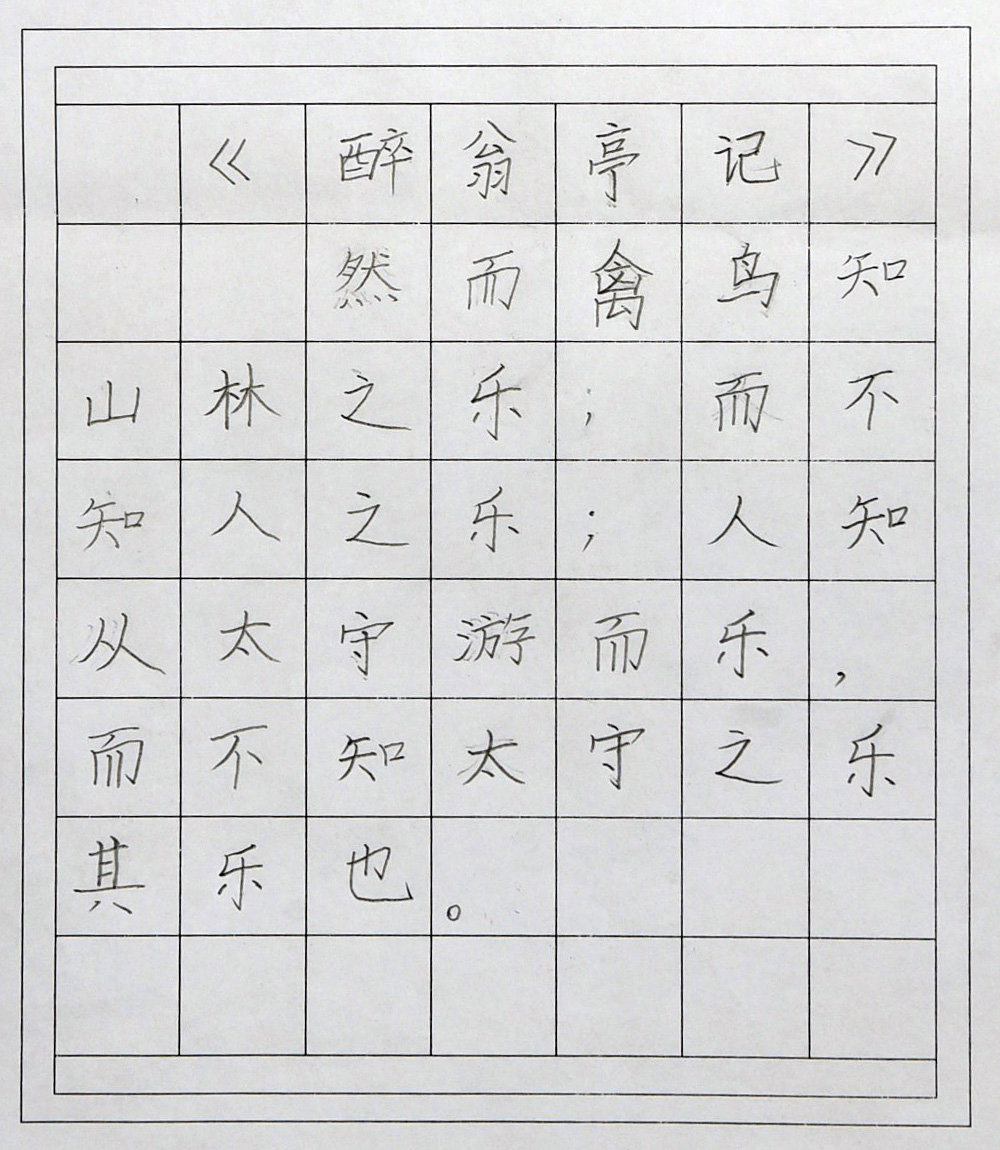 《醉翁亭记》
然而禽鸟知
山林之乐；而不
知人之乐；人知
从太守游而乐，
而不知太守之乐
其乐也。